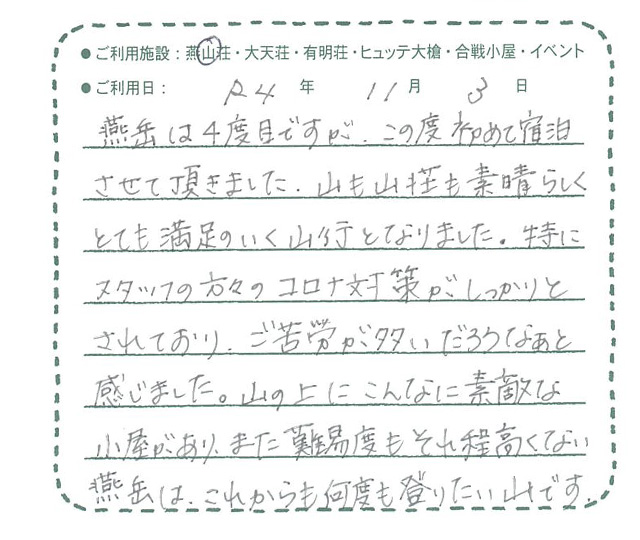 ● ご利用施設：燕山荘・大天荘・有明荘・ヒュッテ大槍・合戦小屋・イベント
● ご利用日： R4 年 11 月 3 日
燕岳は4度目ですが、この度初めて宿泊
させて頂きました。山も山荘も素晴らしく
とても満足のいく山行となりました。特に
スタッフの方々のコロナ対策がしっかりと
されており、ご苦労が多いだろうなぁと
感じました。山の上にこんなに素敵な
小屋があり、また難易度もそれ程高くない
燕岳は、これからも何度も登りたい山です。